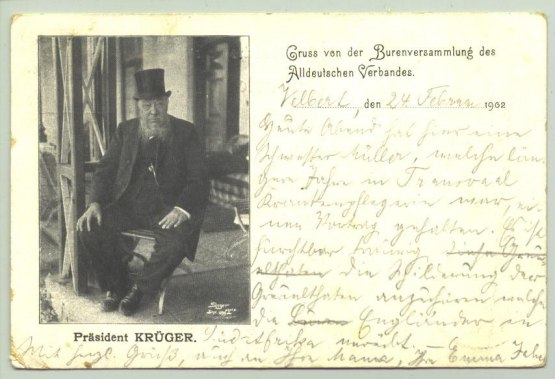 Gruss von der Burenversammlung des
Alldeutschen Verbandes.
Velbert, den 24 Februar 1902
Heute Abend hat hier eine
Schwester Müller, welche län-
gere Jahre in Transvaal
Krankenpflegerin war, ei-
nen Vortrag gehalten. Es ist
furchtbar traurig
die Schilderung der
Greuelthaten anzuhören welche
die Engländer in
Südafrika verübt. –
Mit herzl. Gruß, auch an Ihre Mama, Ihre Emma
Präsident KRÜGER.